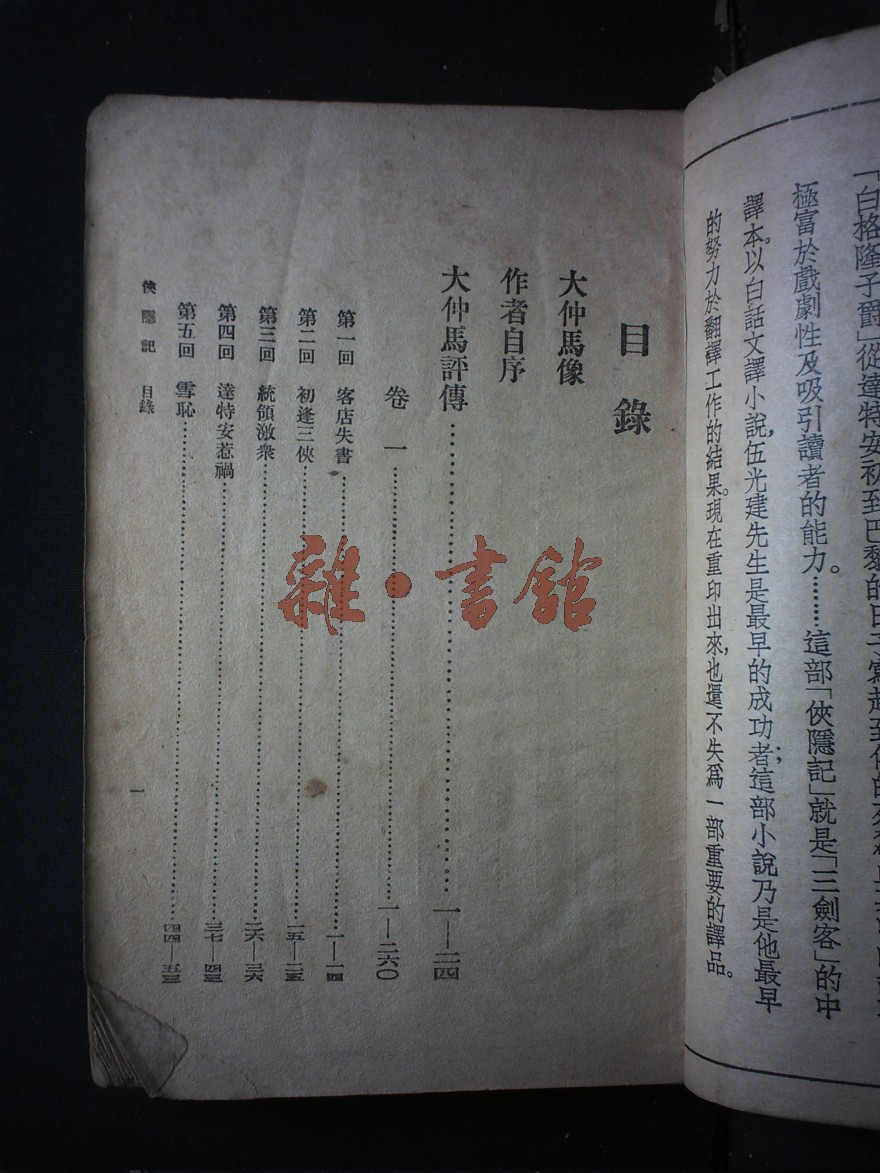 「白格隆子爵」從達特安初到巴黎的日子寫起到他的死
極富於戲劇性及吸引讀者的能力。………這部「俠隱記」就是「三劍客」的中
譯本。以白話文譯小說,伍光建先生是最早的成功者;這部小說乃是他最早
的努力於翻譯工作的結果。現在重印出來,也還不失爲一部重要的譯品。
目錄
大仲馬像
作者自序
大仲馬評傳………………一—二四
卷一………………一—二六〇
第一回 客店失書………………一—一四
第二回 初逢三俠………………一五—二五
第三回 統領激衆………………二六—三六
第四回 達特安惹禍………………三七—四三
第五回 雪恥………………四四—五三
俠隱記 目錄
一
雜·書館